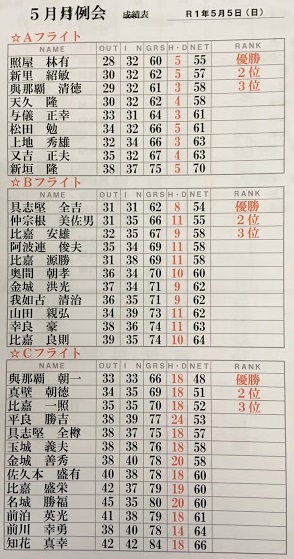 5月月例会 成績表 R1年5月5日(日)
☆Aフライト
NAME OUT IN GRS H・D NET RANK
照屋 林有 28 32 60 5 55 優勝
新里 紹敏 30 32 62 5 57 2位
與那覇 清徳 29 32 61 3 58 3位
天久 隆 30 32 62 4 58
与儀 正幸 31 33 64 3 61
松田 勉 34 32 66 5 61
上地 秀雄 32 34 66 3 63
又吉 正夫 35 32 67 4 63
新垣 隆 38 37 75 5 70
☆Bフライト
NAME OUT IN GRS H・D NET RANK
具志堅 全吉 31 31 62 8 54 優勝
仲宗根 美佐男 31 35 66 11 55 2位
比嘉 安雄 32 35 67 9 58 3位
阿波連 俊夫 35 34 69 11 58
比嘉 源勝 31 38 69 11 58
奥間 朝孝 36 34 70 10 60
金城 洪光 37 34 71 9 62
我如古 清治 36 35 71 9 62
山田 親弘 34 39 73 11 62
幸良 豪 38 36 74 11 63
比嘉 良則 39 35 74 10 64
☆Cフライト
NAME OUT IN GRS H・D NET RANK
與那覇 朝一 33 33 66 18 48 優勝
真壁 朝徳 34 35 69 18 51 2位
比嘉 一照 35 35 70 18 52 3位
平良 勝吉 38 39 77 24 53
具志堅 全樽 38 37 75 18 57
玉城 義夫 38 38 76 18 58
金城 善秀 38 40 78 20 58
佐久本 盛有 40 38 78 18 60
比嘉 盛栄 42 37 79 19 60
名城 勝福 45 35 80 20 60
前泊 英光 41 38 79 18 61
前川 幸勇 38 40 78 14 64
知花 真幸 42 42 84 18 66